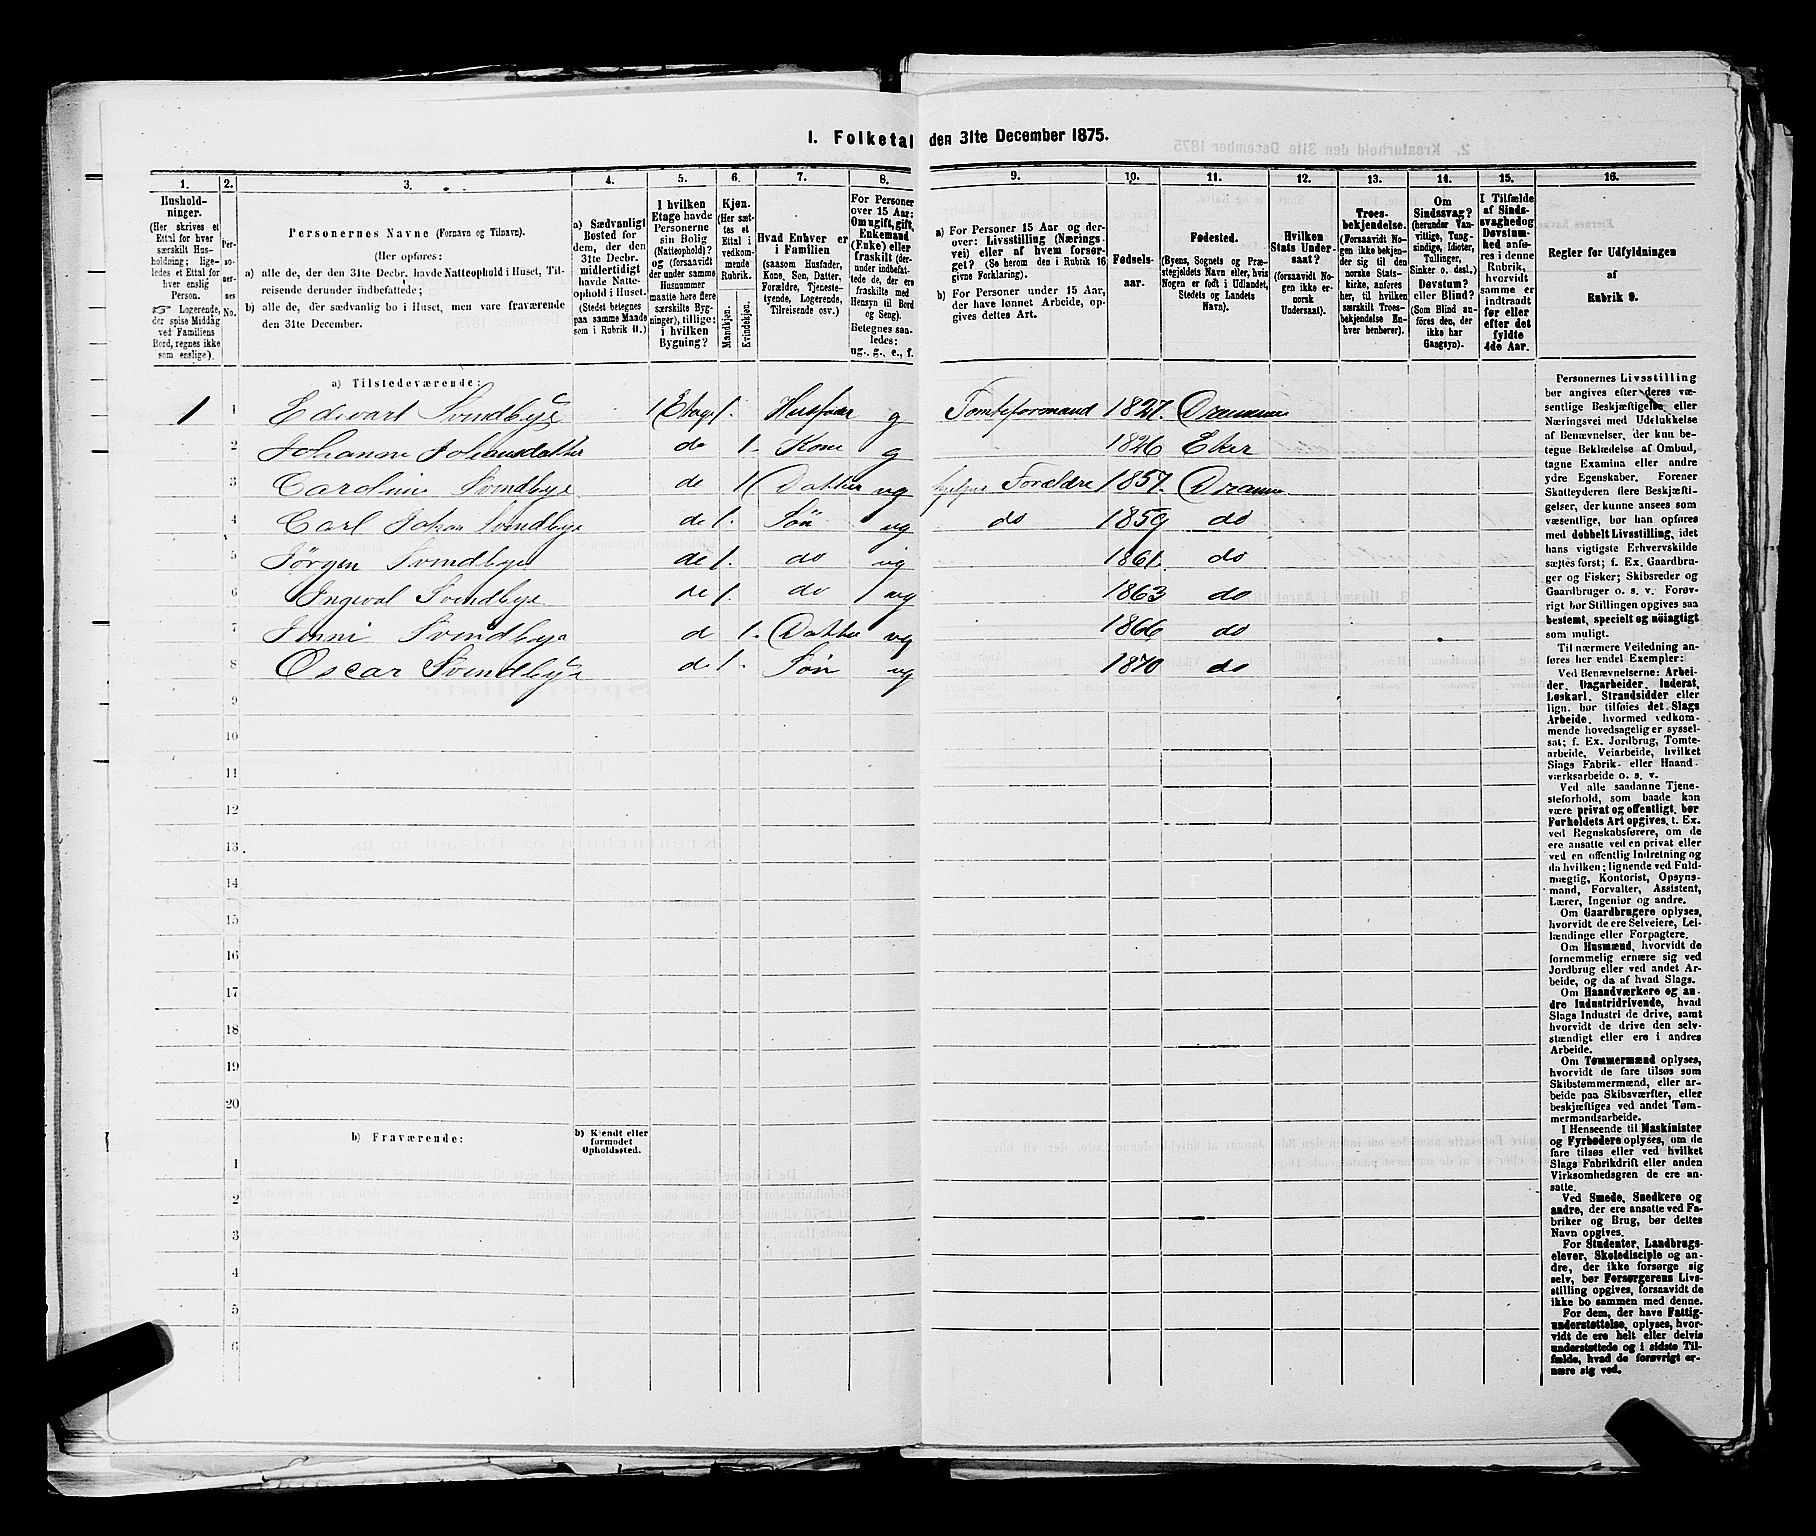 1. Folketal den 31te December 1875.
1. 2. 3. 4. 5. 6. 7. 8. 9. 10. 11. 12. 13. 14. 15. 16.
Hushold-
ninger.
(Her skrives et
Ettal for hver
særskilt Hus-
holdning; lige-
ledes et Ettal for
hver enslig
Person.
☞ Logerende,
der spise Middag
ved Familiens
Bord, regnes ikke
som enslige).
Per-
so-
ner-
nes
No.
Personernes Navne (Fornavn og Tilnavn).
(Her opføres:
a) alle de, der den 31te Decbr. havde Natteophold i Huset, Til-
reisende derunder indbefattede;
b) alle de, der sædvanlig bo i Huset, men vare fraværende
den 31te December.
a) Sædvanligt
Bosted for
dem, der den
31te Decbr.
midlertidigt
havde Natte-
ophold i Huset.
(Stedet betegnes
paa samme Maade
som i Rubrik 11.)
I hvilken
Etage havde
Personerne
sin Bolig
(Natteophold)?
og (forsaavidt
der under samme
Husnummer
maatte høre flere
særskilte Byg-
ninger), tillige:
i hvilken
Bygning?
Kjøn.
(Her sæt-
tes et
Ettal i
vedkom-
mende
Rubrik.
Mandkjøn.
Kvindekjøn.
Hvad Enhver er
i Familien
(saasom Husfader,
Kone, Søn, Datter,
Forældre, Tjeneste-
tyende, Logerende,
Tilreisende osv.)
For Personer
over 15 Aar:
Om ugift, gift,
Enkemand
(Enke) eller
fraskilt (der-
under indbefat-
tede de, der ere
fraskilte med
Hensyn til Bord
og Seng).
Betegnes saa-
ledes:
ug., g., e., f.
a) For Personer 15 Aar og der-
over: Livsstilling (Nærings-
vei) eller af hvem forsør-
get? (Se herom den i Rubrik 16
givne Forklaring).
b) For Personer under 15 Aar,
der have lønnet Arbeide, op-
gives dettes Art.
Fødsels-
aar.
Fødested.
(Byens, Sognets og Præ-
stegjeldets Navn eller, hvis
Nogen er født i Udlandet,
Stedets og Landets
Navn).
Hvilken
Stats Under-
saat?
(forsaavidt No-
gen ikke er
norsk
Undersaat).
Troes-
bekjendelse.
(Forsaavidt No-
gen ikke bekjen-
der sig til den
norske Stats-
kirke, anføres
her, til hvilken
særskilt Troes-
bekjendelse En-
hver henhører).
Om
Sindssvag?
(herunder Van-
vittige, Tung-
sindige, Idioter,
Tullinger,
Sinker o. desl.)
Døvstum?
eller Blind?
(Som Blind an-
føres den, der
ikke har
Gangsyn).
I Tilfælde
af Sinds-
svaghed og
Døvstum-
hed anfø-
res i denne
Rubrik,
hvorvidt
samme er
indtraadt
før eller
efter det
fyldte
4de Aar.
Regler for Udfyldningen
af
Rubrik 9.
a) Tilstedeværende:
1 1 Edvart Svindbye 1 Etage 1. Husfader g Tomteformand 1827. Drammen
2 Johanne Johansdatter do 1. Kone g 1826 Eker
3 Caroline Svindbye do 1 Datter ug hjelper Forældre 1857. Dramm
4 Carl Johan Svindbye do 1. Søn ug do 1859 do
5 Jørgen Svindbye do 1. do ug 1861. do
6 Ingeval Svindbye do 1. do ug 1863 do
7 Jenni Svindbye do 1. Datter ug 1866 do
8 Oscar Svindbye do 1. Søn ug 1870 do
9
10
11
12
13
14
15
16
17
18
19
20
b) Fraværende:
b) Kjendt eller
formodet
Opholdssted.
1
2
3
4
5
6
Personernes Livsstilling
bør angives efter deres væ-
sentlige Beskjæftigelse eller
Næringsvei med Udelukkelse
af Benævnelser, der kun be-
tegne Beklædelse af Ombud,
tagne Examina eller andre
ydre Egenskaber. Forener
Skatteyderen flere Beskjæfti-
gelser, der kunne ansees som
væsentlige, bør han opføres
med dobbelt Livsstilling, idet
hans vigtigste Erhvervskilde
sættes først; f. Ex. Gaardbru-
ger og Fisker; Skibsreder og
Gaardbruger o. s. v. Forøv-
rigt bør Stillingen opgives saa
bestemt, specielt og nöiagtigt
som muligt.
Til nærmere Veiledning an-
føres her endel Exempler:
Ved Benævnelserne: Arbei-
der, Dagarbeider, Inderst,
Løskarl, Strandsidder eller
lign. bør tilføies det Slags
Arbeide, hvormed vedkom-
mende hovedsagelig er syssel-
sat; f. Ex. Jordbrug, Tomte-
arbeide, Veiarbeide, hvilket
Slags Fabrik- eller Haand-
værksarbeide o. s. v.
Ved alle saadanne Tjene-
steforhold, som baade kan
være privat og offentligt, bør
Forholdets Art opgives, t. Ex.
ved Regnskabsførere, om de
ere ansatte ved en privat eller
ved en offentlig Indretning og
da hvilken; lignende ved Fuld-
mægtig, Kontorist, Opsyns-
mand, Forvalter, Assistent,
Lærer, Ingeniør og andre.
Om Gaardbrugere oplyses,
hvorvidt de ere Selveiere, Lei-
lændinge eller Forpagtere.
Om Husmænd, hvorvidt de
fornemmelig ernære sig ved
Jordbrug eller ved andet Ar-
beide, og da af hvad Slags.
Om Haandværkere og an-
dre Industridrivende, hvad
Slags Industri de drive, samt
hvorvidt de drive den selv-
stændigt eller ere i andres
Arbeide.
Om Tømmermænd oplyses,
hvorvidt de fare tilsøs som
Skibstømmermænd, eller ar-
beide paa Skibsværfter, eller
beskjæftiges ved andet Tøm-
mermandsarbeide.
I Henseende til Maskinister
og Fyrbødere oplyses, om de
fare tilsøs eller ved hvilket
Slags Fabrikdrift eller anden
Virksomhedsgren de ere an-
satte.
Ved Smede, Snedkere og
andre, der ere ansatte ved Fa-
briker og Brug, bør dettes
Navn opgives.
For Studenter, Landbrugs-
elever, Skoledisciple og an-
dre, der ikke forsørge sig
selv, bør Forsørgerens Livs-
stilling opgives, forsaavidt de
ikke bo sammen med denne.
For dem, der have Fattig-
understøttelse, oplyses, hvor-
vidt de ere helt eller delvis
understøttede og i sidste Til-
fælde, hvad de forøvrigt er-
nære sig ved.